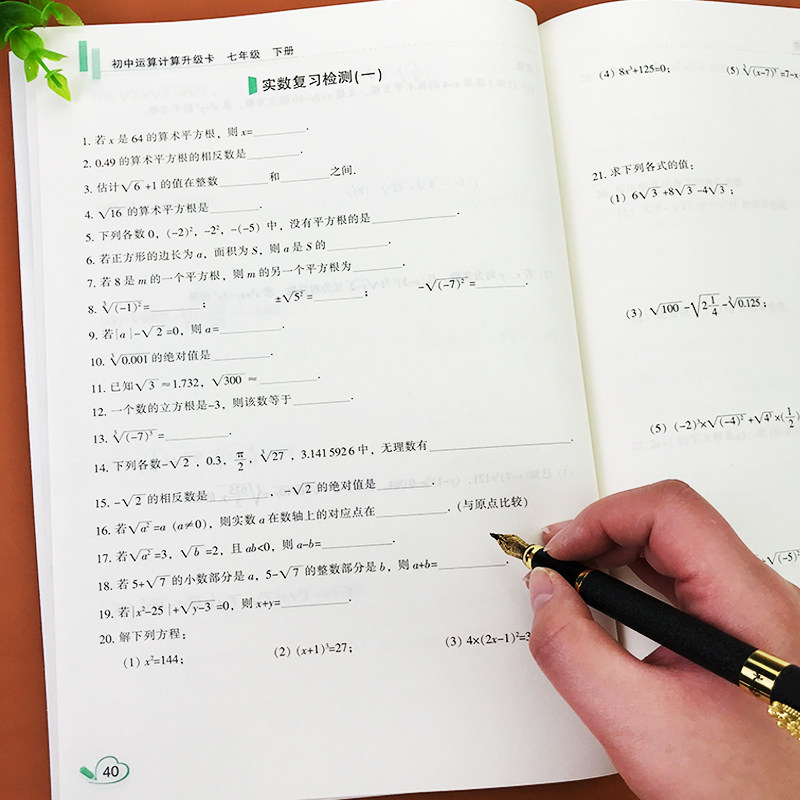 初中运算计算升级卡 七年级 下册
实数复习检测(一)
1. 若 x 是 64 的算术平方根，则 x=________.
2. 0.49 的算术平方根的相反数是________.
3. 估计√6+1 的值在整数________和________之间.
4. √16 的算术平方根是________.
5. 下列各数 0，(-2)²，-2²，-(-5) 中，没有平方根的是________.
6. 若正方形的边长为 a，面积为 S，则 a 是 S 的________.
7. 若 8 是 m 的一个平方根，则 m 的另一个平方根为________.
8. ∛(-1)²=________； ±√5²=________； -√(-7)²=________.
9. 若|a|-√2=0，则 a=________.
10. ∛0.001 的绝对值是________.
11. 已知√3≈1.732，√300≈________.
12. 一个数的立方根是-3，则该数等于________.
13. ∛(-7)³=________.
14. 下列各数-√2，0.3，π/2，∛27，3.1415926 中，无理数有________.
15. -√2 的相反数是________，-√2 的绝对值是________.
16. 若√a²=a（a≠0），则实数 a 在数轴上的对应点在________.（与原点比较）
17. 若√a²=3，√b=2，且 ab<0，则 a-b=________.
18. 若 5+√7 的小数部分是 a，5-√7 的整数部分是 b，则 a+b=________.
19. 若|x²-25|+√y-3=0，则 x+y=________.
20. 解下列方程：
(1) x²=144； (2) (x+1)³=27； (3) 4×(2x-1)²=3
40
(4) 8x³+125=0； (5) ∛(x-7)³=7-x
21. 求下列各式的值：
(1) 6√3+8√3-4√3；
(3) √100-√2 1/4-∛0.125；
(5) (-2)³×√(-4)²+√4³×(1/2)
√(-5)²